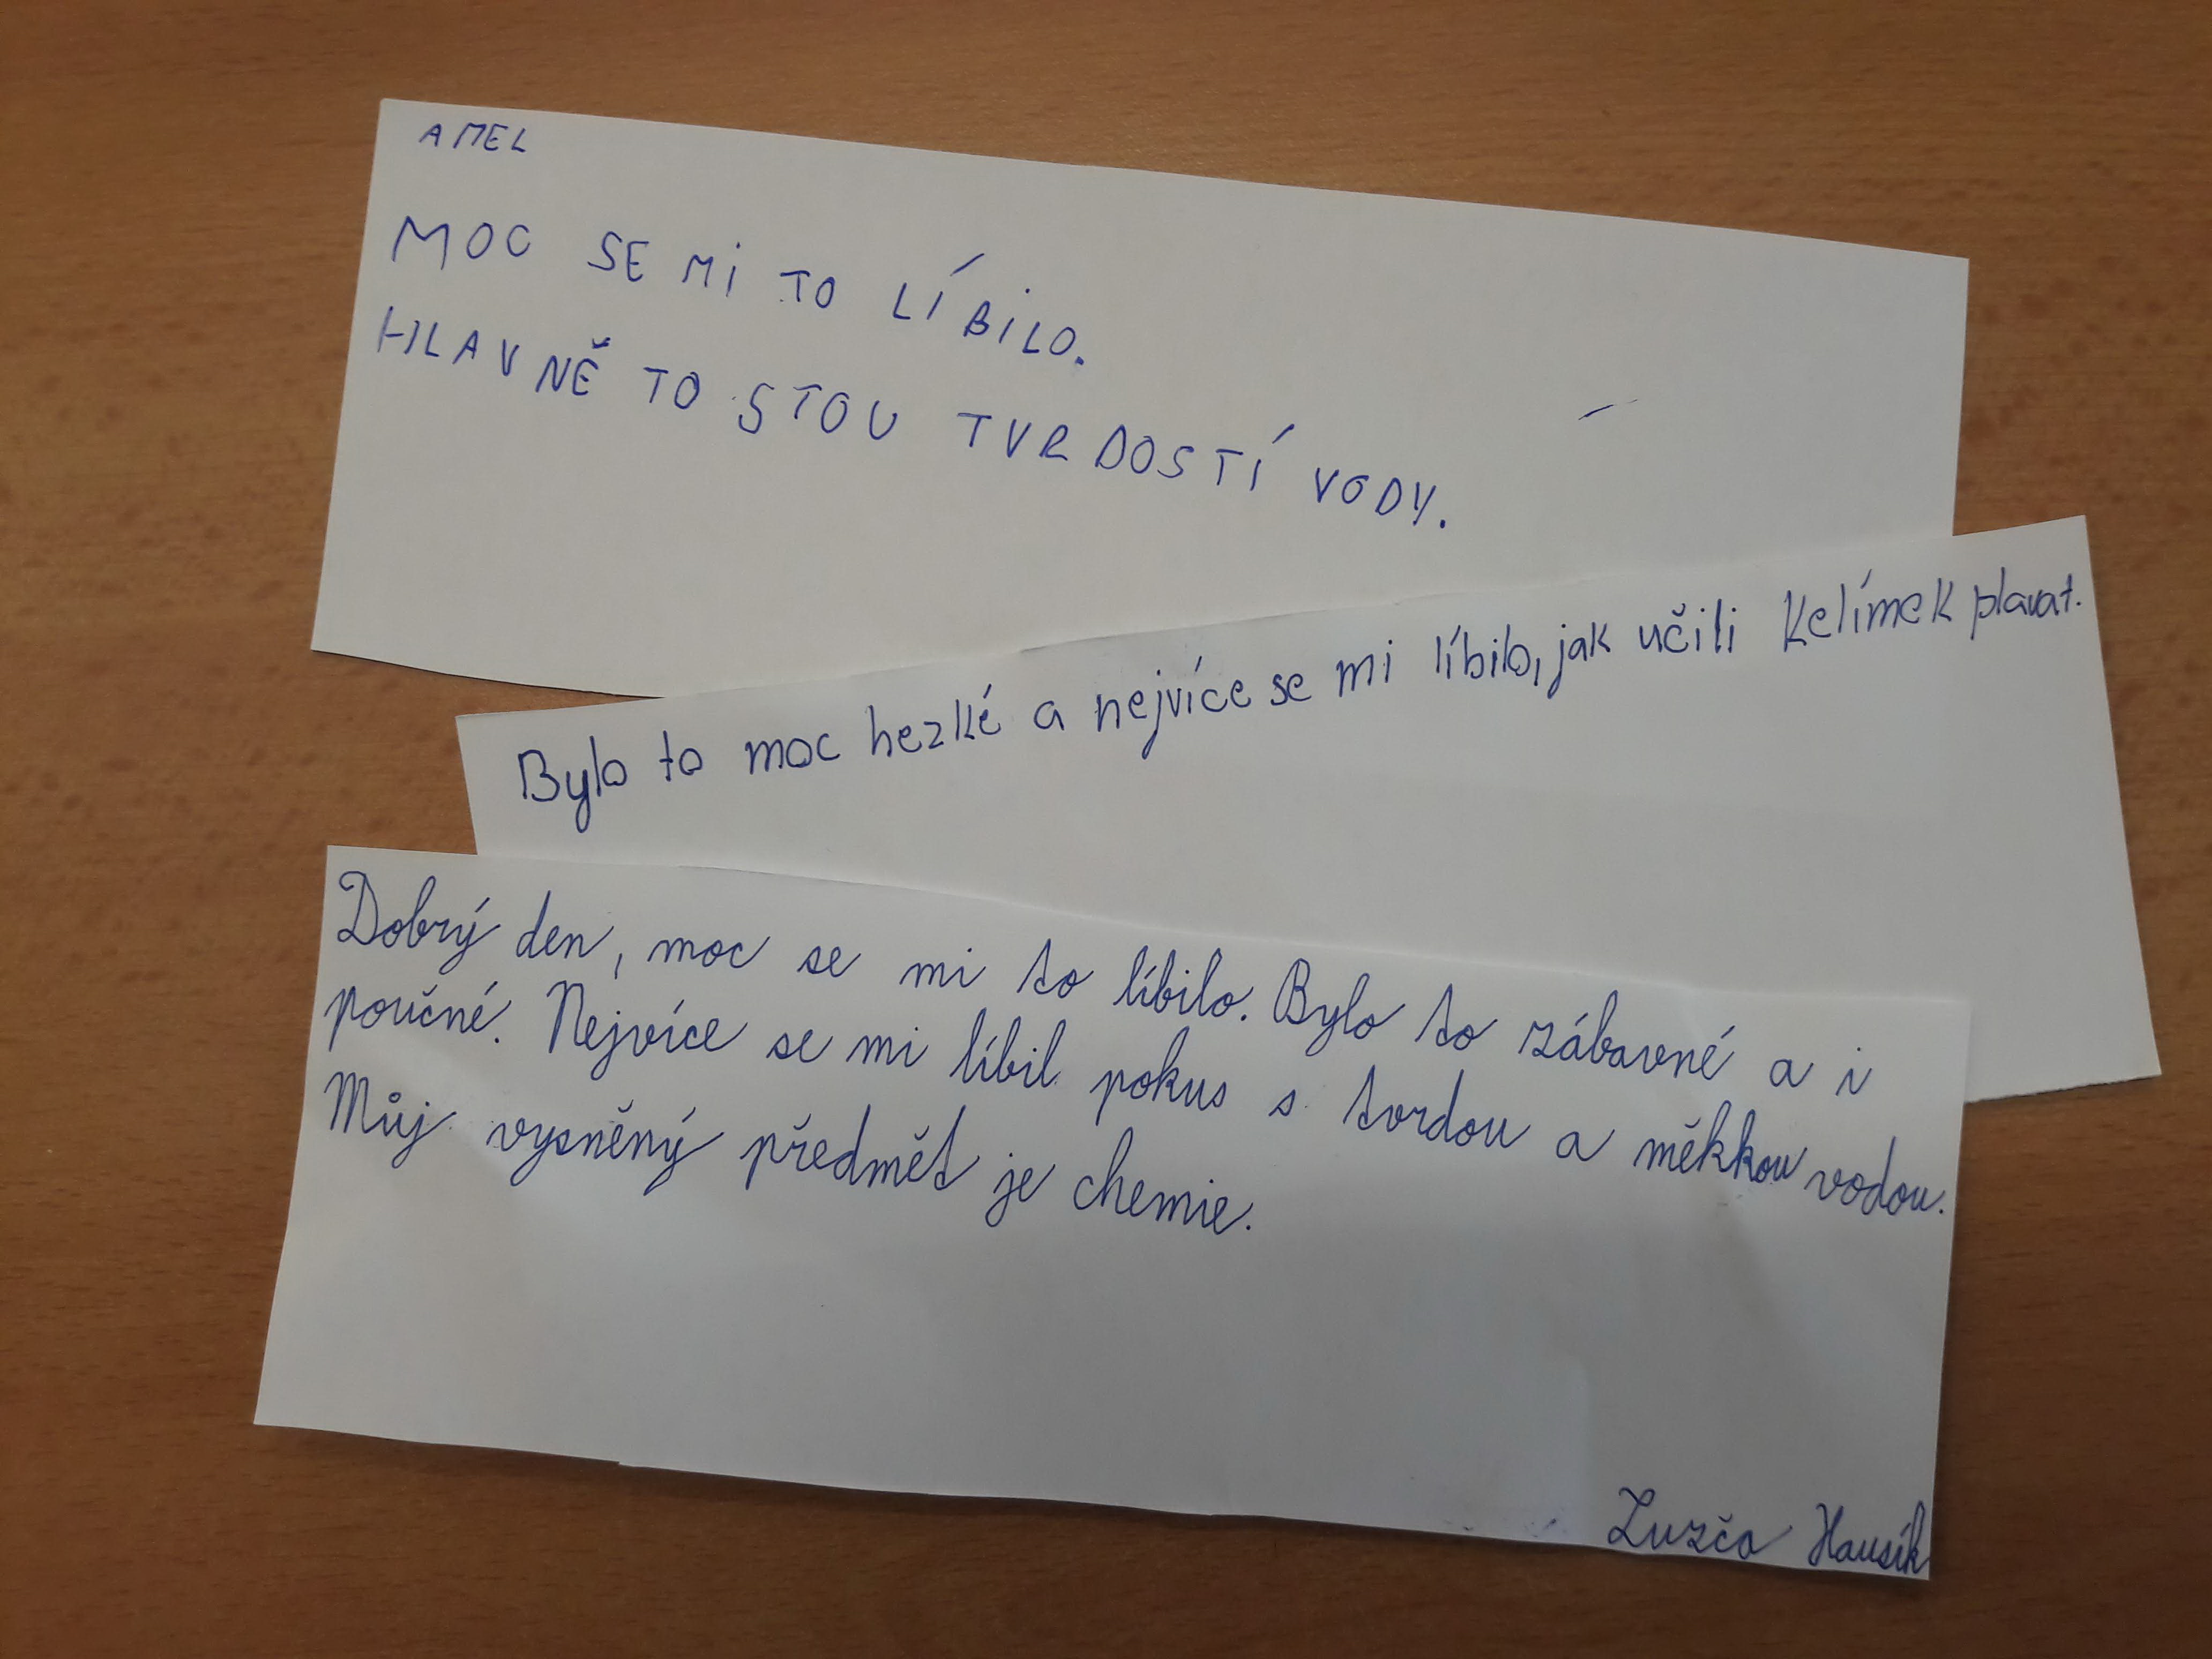 AMEL
MOC SE MI TO LÍBILO.
HLAVNĚ TO STOU TVRDOSTÍ VODY.
Bylo to moc hezké a nejvíce se mi líbilo, jak učili Kelímek plavat.
Dobrý den, moc se mi to líbilo. Bylo to zábavné a i
poučné. Nejvíce se mi líbil pokus s tvrdou a měkkou vodou.
Můj vysněný předmět je chemie.
Zuzča Hausík